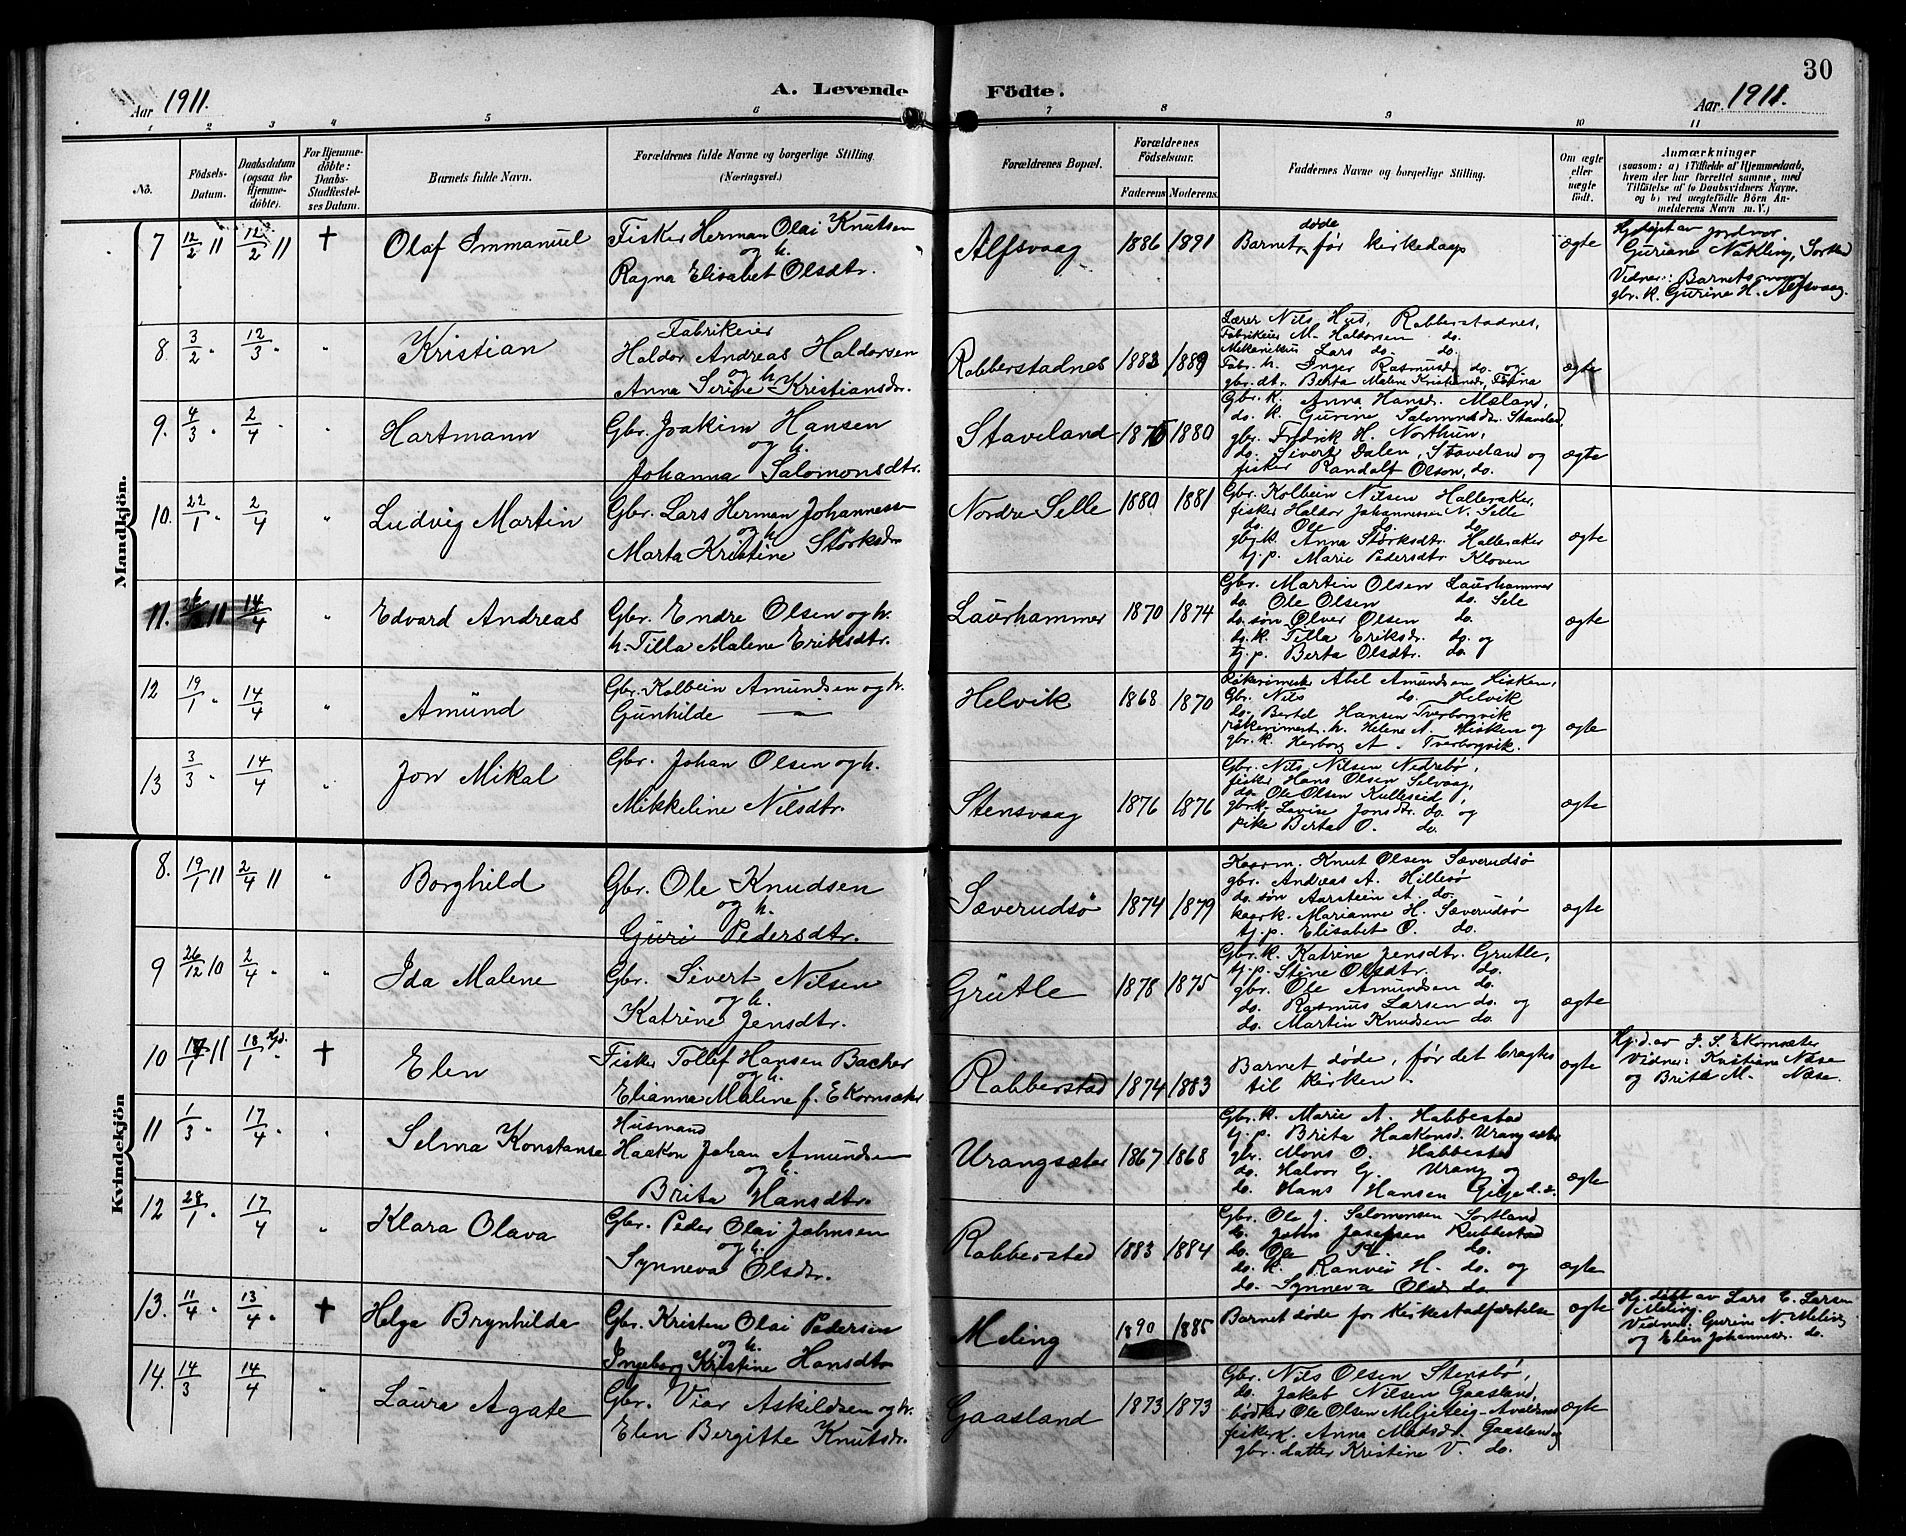 30
Aar 1911.
A. Levende Födte.
Aar 1911.
1 2 3 4 5 6 7 8 9 10 11
No.
Födsels-Datum.
Daabsdatum (ogsaa for Hjemme-döbte).
For Hjemme-döbte: Daabs-Stadfestel-ses Datum.
Barnets fulde Navn.
Forældrenes fulde Navne og borgerlige Stilling. (Næringsvei.)
Forældrenes Bopæl.
Forældrenes Födselsaar.
Faderens Moderens
Faddernes Navne og borgerlige Stilling.
Om ægte eller uægte födt.
Anmærkninger
(saasom: a) i Tilfælde af Hjemmedaab,
hvem der har forrettet samme, med
Tilföielse af to Daabsvidners Navne,
og b) ved uægtefödte Börn An-
melderens Navn m. V.)
Mandkjön.
7 12/2 11 12/2 11 † Olaf Immanuel
Fisker Herman Olai Knutsen
og h.
Ragna Elisabet Olsdtr.
Alfsvaag 1886 1891
døde
Barnet før kirkedaap
ægte
Hjdøpt av jordmor
Guriane Nøkling, Sortland
Vidner: Barnets
gbr. k. Gurine H. Alfsvaag.
8. 3/2 " 12/3 " " Kristian
Fabrikeier
Haldor Andreas Haldorsen
og h.
Anna Serine Kristiansdr.
Robberstadnes 1883 1889
Lærer Nils Hus, Robberstadnes,
Fabrikeier M. Haldorsen do.
Mekanikus Lars do. do.
Fabr. h. Inger Rasmusdr. do. og
gbr. dtr. Berta Malene Kristiansdr,
ægte
9. 4/3 " 2/4 " " Hartmann
Gbr. Joakim Hansen
og h.
Johanna Salomonsdtr.
Staveland 1875 1880
Gbr. k. Anna Hansd. Mæland,
do. k. Gurine Salomonsdr. Staveland,
gbr. Fredrik H. Northun,
do. Sivert Dalen, Staveland og
fisker Randalf Olson, do.
ægte
10. 22/1 " 2/4 " Ludvig Martin
Gbr. Lars Herman Johannessen
og h.
Marta Kristine Størksdr
Nordre Selle 1880 1881
Gbr. Kolbein Nilsen Halleraker,
fisker Haldor Johannessen N. Selle
do. Ole do. do.
gbr. k. Anna Størksdtr. Halleraker
tj. p. Marie Pedersdtr. Kloven
ægte
11. 11 14/4 " Edvard Andreas
Gbr. Endre Olsen og h.
h. Tilla Malene Eriksdtr.
Laurhammer 1870 1874
Gbr. Martin Olsen Laurhammer
do. Ole Olsen do. Sele
do. søn Olver Olsen do.
do. k. Tilla Eriksdr. do. og
tj. p. Berta Olsdtr. do.
ægte
12 19/1 " 14/4 " Amund
Gbr. Kolbein Amundsen og h.
Gunhilde —
Helvik 1868 1870
Abel Amundsen Hisken,
Gbr. Nils do. Helvik
do. Bertel Hansen Tverborgvik
h. Helene A. Hisken og
gbr. k. Herborg A. Tverborgvik.
ægte
13 3/3 " 14/4 " Jon Mikal
Gbr. Johan Olsen og h.
Mikkeline Nilsdtr.
Stensvaag 1876 1876
Gbr. Nils Nilsen Nedrebø,
fisker Hans Olsen Selvaag,
do. Ole Olsen Kulleseid,
gbr. k. Lavise Jonsdtr. do. og
pike Berta O. do.
ægte
Kvindekjön
8. 19/1 11 2/4 11 " Borghild
Gbr. Ole Knudsen
og h.
Guri Pedersdtr.
Sæverudsø 1874 1879
Kaarm. Knut Olsen Sæverudsø
gbr. Andreas A. Hillesø
do. søn Aarstein A. do.
kaark. Marianne H. Sæverudsø
tj. p. Elisabet O. do.
ægte
9 26/12 10 2/4 " " Ida Malene
Gbr. Sivert Nilsen
og h.
Katrine Jensdtr.
Grutle 1878 1875
Gbr. k. Katrine Jensdtr. Grutle,
tj. p. Stine Olsdtr. do.
gbr. Ole Amundsen do.
do. Rasmus Larsen do. og
do. Martin Knudsen do.
ægte
10 11 18/1 Hjd. † Elen
Fisker Tollef Hansen Bacher
og h.
Elianna Maline f. Ekornsæter
Robberstad 1874 1883
Barnet døde, før det bragtes
til kirken.
ægte
Hj.d. av J. S. Ekornsæter
Vidner: Kristiane Næse
og Brita M. Næse.
11 1/3 " 17/4 " " Selma Konstanse
Husmand
Haakon Johan Amundsen
og h.
Brita Hansdtr.
Urangsæter 1867 1868
Gbr. k. Marie A. Habbestad
tj. p. Brita Haakonsd. Urangsæter
gbr. Mons O. Habbestad
do. Halvor G. Urang og
do. Hans Hansen Gilje d.e.
ægte
12 28/1 " 17/4 " Klara Olava
Gbr. Peder Olai Johnsen
og h.
Synneva Olsdr.
Robberstad 1883 1884
Gbr. Ole J. Salomonsen Sortland
do. John Josefsen Rubbestad
do. Ole do.
do. k. Ranvei H. do. og
do. Synneva Olsdr do.
ægte
13. 11/4 " 13/4 " † Helga Brynhilda
Gbr. Kristen Olai Pedersen
og h.
Ingeborg Kristine Hansdtr
Meling 1890 1885
Barnet døde for kirkestadfæstelse
ægte
Hj. døbt av Lars E. Larsen
Meling.
Vidner: Gurine N. Meling
og Elen Johannesdr. do.
14. 14/3 14/4 " Laura Agate
Gbr. Viar Askildsen og h.
Elen Bergitte Knutsdr.
Gaasland 1873 1873
Gbr. Nils Olsen Stensbø,
do. Jakob Nilsen Gaasland,
bødker Ole Olsen Meljeteig - Avaldsnes
fisker k. Anna Madsdr. Gaasland og
gbr. datter Kristine V. do.
ægte